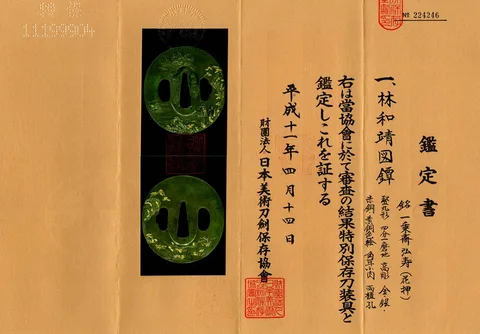 № 224246
特保
11199904
鑑定書
一、林和靖図鐔
銘 一乗斎弘寿(花押)
竪丸形 四分一磨地 高彫 金銀・
赤銅・素銅色絵 角耳小肉 両櫃孔
右は當協會に於て審査の結果特別保存刀装具と
鑑定しこれを証する
平成十一年四月十四日
財團法人 日本美術刀劍保存協會